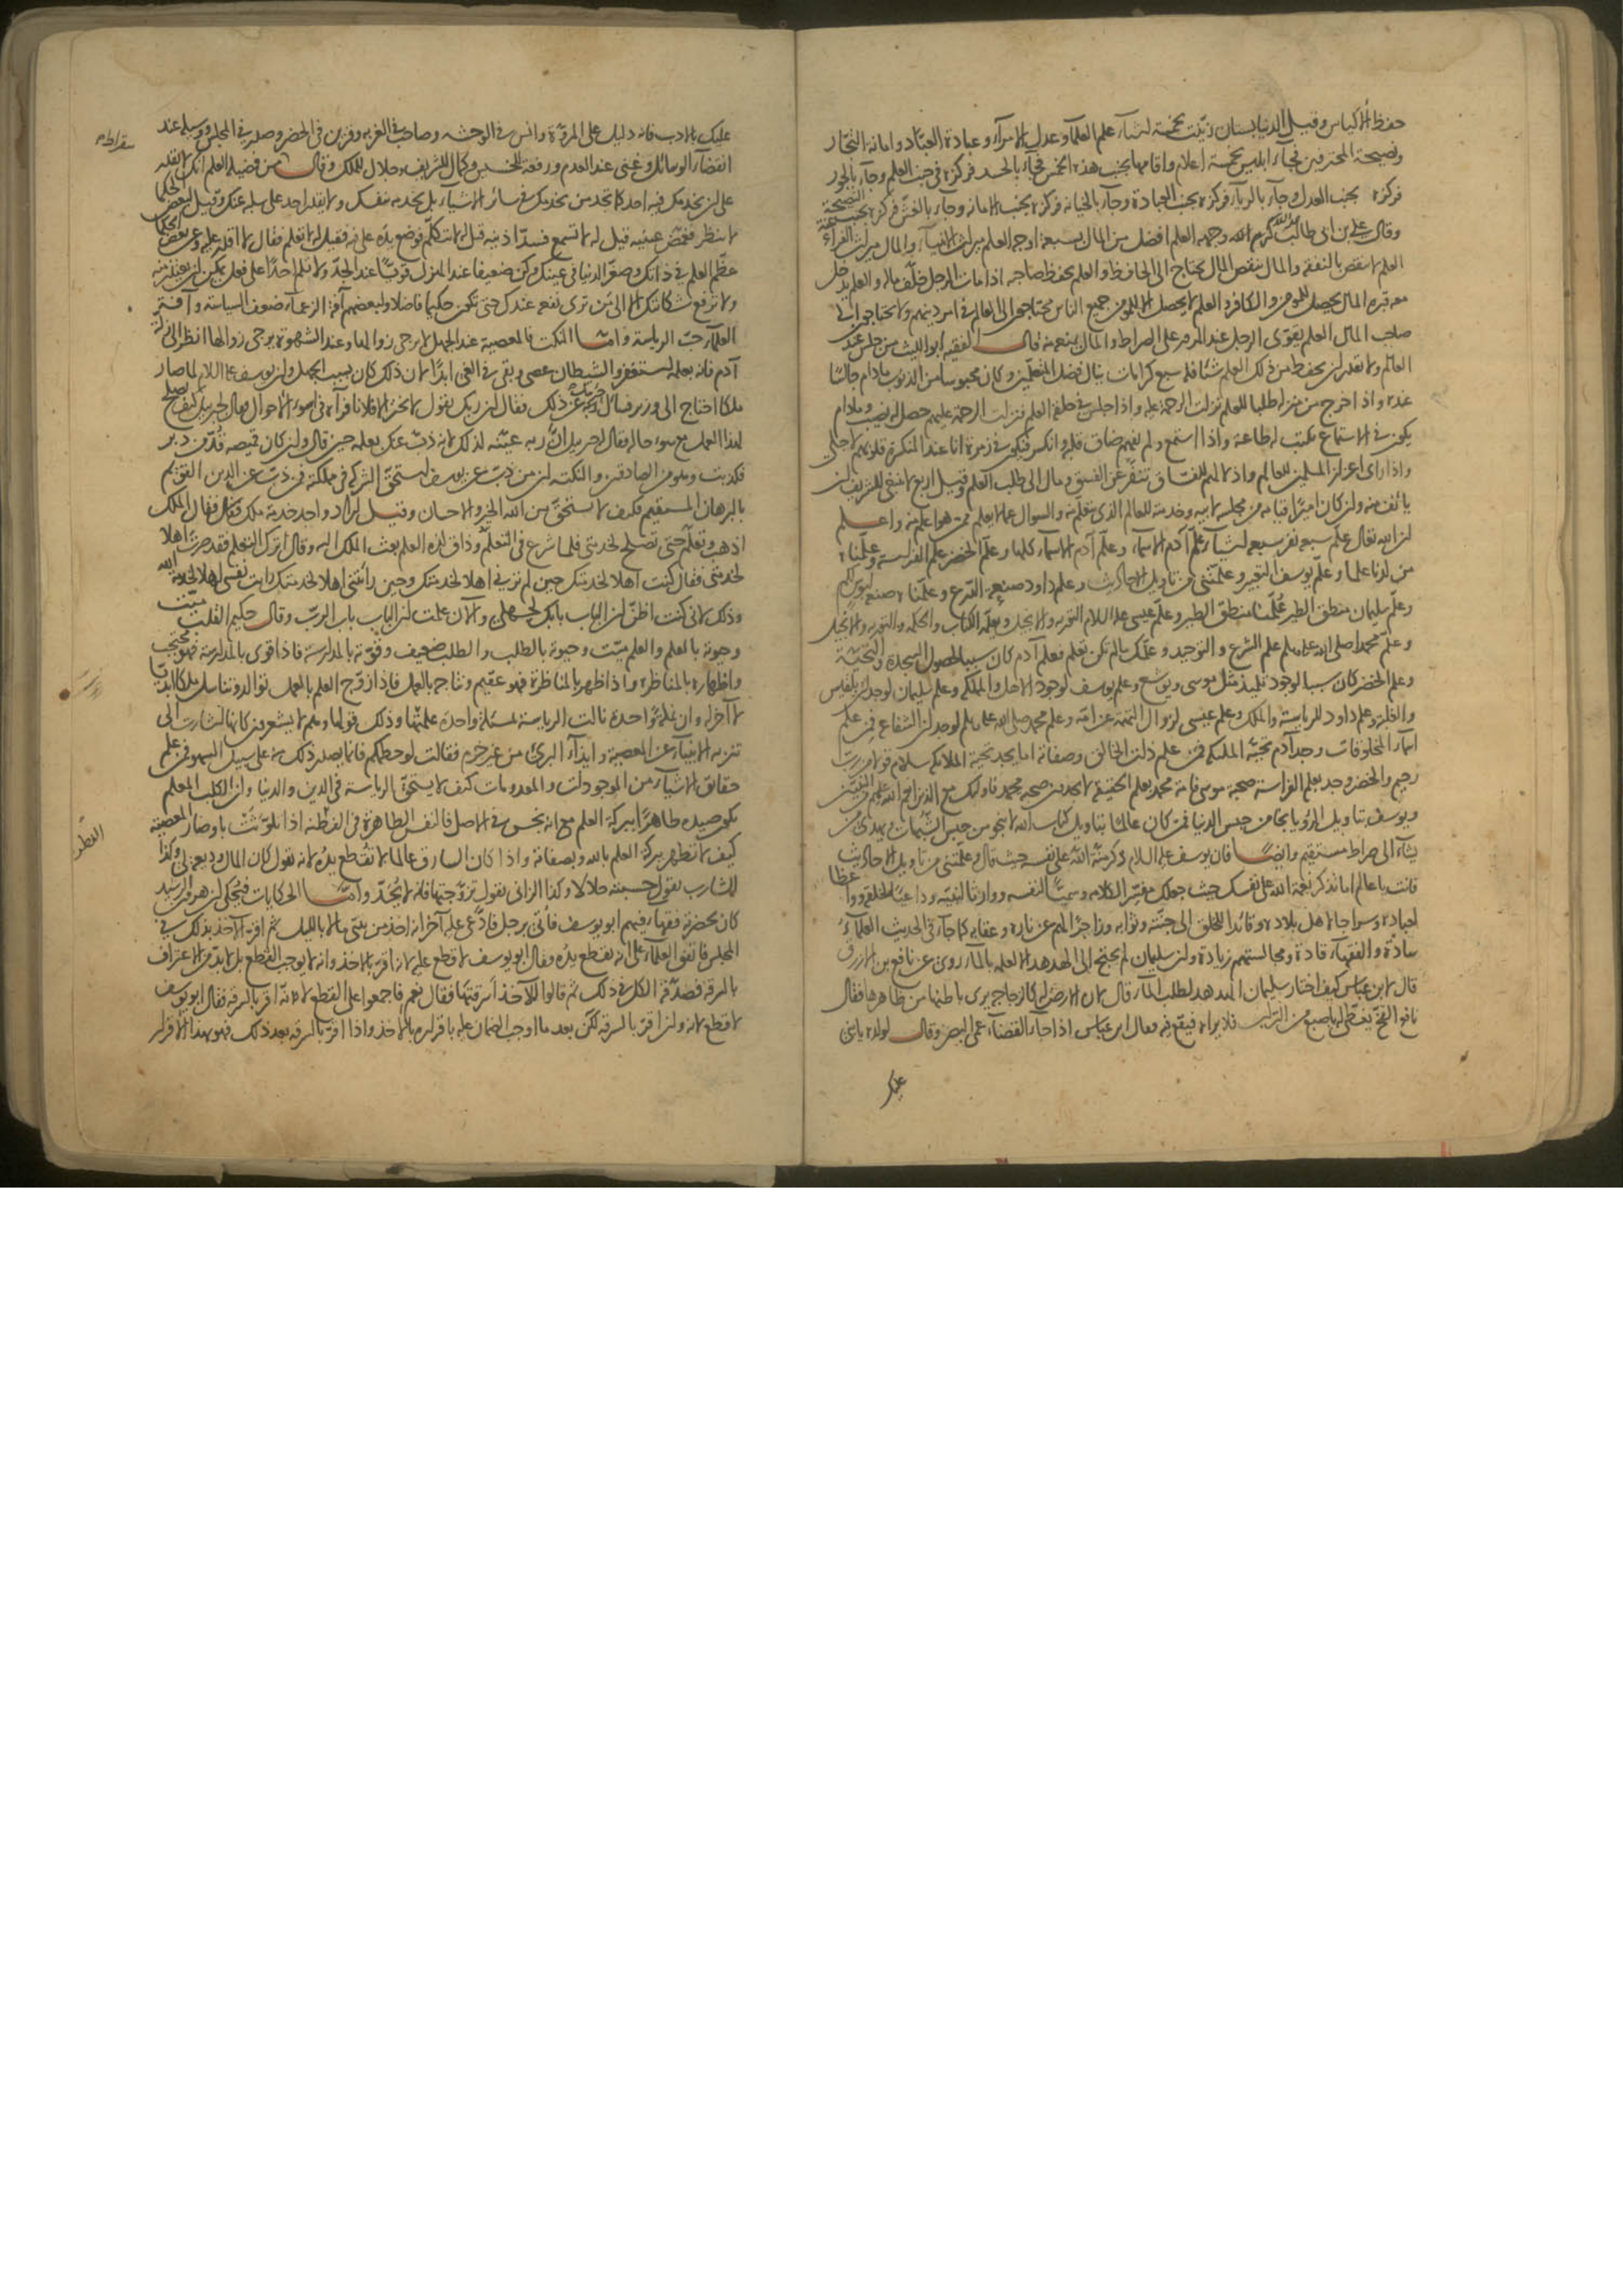 حفظ الاكياس وقيل الدنيا بستان زينت بخمسة اشياء علم العلماء وعدل الامراء وعبادة العباد وامانة التجار
ونصيحة المحترفين فجاء ابليس بخمسة اعلام واقامها بجنب هذه الخمس فجاء بالحسد فركزه في جنب العلم وجاء بالجور
فركزه بجنب العدل وجاء بالرياء فركزه بجنب العبادة وجاء بالخيانة فركزه بجنب الامانة وجاء بالغش فركزه بجنب النصيحة
وقال علي بن ابي طالب كرم الله وجهه العلم افضل من المال بسبعة اوجه العلم ميراث الانبياء والمال ميراث الفراعنة
العلم لا ينقص بالنفقة والمال ينقص المال يحتاج الى الحافظ والعلم يحفظ صاحبه اذا مات الرجل خلف ماله والعلم يدخل
معه قبره المال يحصل للمومن والكافر والعلم لا يحصل الا للمومن جميع الناس محتاجون الى العالم في امر دينهم ولا يحتاجون الى
صاحب المال العلم يقوي الرجل عند المرور على الصراط والمال يمنعه منه قال الفقيه ابو الليث من جلس عند
العالم ولا يقدر ان يحفظ من ذلك العلم شئا فله سبع كرامات ينال فضل المتعلمين وكان محبوسا من الذنوب مادام جالسا
عنده واذا خرج من منزله طلبا للعلم نزلت الرحمة عليه واذا جلس في حلقة العلم فنزلت الرحمة عليهم حصل له نصيب ومادام
يكون في الاستماع يكتب له طاعة واذا استمع ولم يفهم ضاق قلبه وانكسر فيكون في زمرة انا عند المنكسرة قلوبهم لاجلي
واذا راى اعزاز المسلمين للعالم واذلالهم للفساق تنفر عن الفسق ومال الى طلب العلم وقيل اربع لا ينبغي للشريف ان
يأنف منه وان كان اميرا قيامه من مجلسه لابيه وخدمته للعالم الذي يتعلم منه والسوال عما لا يعلم ممن هو اعلم منه واعلم
ان الله تعالى علم سبعة نفر سبعة اشياء علم آدم الاسماء وعلم آدم الاسماء كلها وعلم الخضر علم الفراسة وعلمناه
من لدنا علما وعلم يوسف التعبير وعلمتني من تاويل الاحاديث وعلم داود صنعة الدرع وعلمناه صنعة لبوس لكم
وعلم سليمان منطق الطير علمنا منطق الطير وعلم عيسى عليه السلام التورية والانجيل ويعلمه الكتاب والحكمة والتورية والانجيل
وعلم محمدا صلى الله عليه وسلم علم الشرع والتوحيد وعلمك ما لم تكن تعلم فعلم آدم كان سببا لحصول السجدة والتحية
وعلم الخضر كان سببا لوجود تلميذ مثل موسى ويوشع وعلم يوسف لوجود الاهل والمملكة وعلم سليمان لوجدان بلقيس
والغلبة وعلم داود للرياسة والملك وعلم عيسى لزوال التهمة عن امه وعلم محمد صلى الله عليه وسلم لوجدان الشفاعة فمن علم
اسماء المخلوقات وجد آدم تحية الملئكة فمن علم ذات الخالق وصفاته اما يجد تحية الملائكة سلام قولا من رب
رحيم والخضر وجد بعلم الفراسة صحبة موسى فامة محمد بعلم الحقيقة لا يجدون صحبة محمد فاولئك مع الذين انعم الله عليهم من النبيين
ويوسف بتاويل الرؤيا نجا من حبس الدنيا فمن كان عالما بتاويل كتاب الله لا ينجو من حبس الشبهات ويهدي من
يشاء الى صراط مستقيم وايضا فان يوسف عليه السلام ذكر منة الله على نفسه حيث قال وعلمتني من تاويل الاحاديث
فانت يا عالم اما تذكر نعمة الله على نفسك حيث جعلك مفسرا لكلامه وسميا لنفسه ووارثا لنبيه وداعيا لخلقه وواعظا
لعباده وسراجا لاهل بلاده وقائدا للخلق الى جنته وثوابه وزاجرا لهم عن ناره وعقابه كما جاء في الحديث العلماء
سادة والفقهاء قادة ومجالستهم زيادة وان سليمان لم يحتج الى الهدهد الا لعلمه بالماء روي عن نافع بن الازرق
قال لابن عباس كيف اختار سليمان الهدهد لطلب الماء قال لان الارض له كالزجاجة يرى باطنها من ظاهرها فقال
نافع الفخ يغطى له باصبع من التراب فلا يراه فيقع فيه فقال ابن عباس اذا جاء القضاء عمي البصر وقال لولده يا بني
عليك
عليك بالادب فانه دليل على المروة وانس في الوحشة وصاحب في الغربة وقرين في الحضر وصدر في المجلس ووسيلة عند
سقراط
انقضاء الوسائل وغنى عند العدم ورفعة للخسيس وكمال للشريف وجلال للملك وقال من فضيلة العلم انك لا تقدر
على ان يخدمك فيه احد كما تجد من يخدمك في سائر الاشياء بل تخدمه بنفسك ولا يقدر احد على سلبه عنك وقيل لبعض الحكماء
لا تنظر فغمض عينيه قيل له لا تسمع فسد اذنيه قيل له لا تتكلم فوضع يده على فيه فقيل له لا تعلم فقال لا اقدر عليه وعن بعض الحكماء
عظم العلم في ذاتك وصغر الدنيا في عينك وكن ضعيفا عند الهزل قويا عند الجد ولا تلم احدا على فعل يمكن ان يعتذر منه
ولا ترفع شكايتك الا الى من ترى نفعه عندك حتى تكون حكيما فاضلا ولبعضهم آفة الزعماء ضعف السياسة وآفة
العلماء حب الرياسة واما النكت فالمعصية عند الجهل لا يرجى زوالها وعند الشهوة يرجى زوالها انظر الى زلة
آدم فانه بعلمه استغفر والشيطان عصى وبقي في الغي ابدا لان ذلك كان بسبب الجهل وان يوسف عليه السلام لما صار
ملكا احتاج الى وزير فسأل ربه عن ذلك فقال ان ربك يقول لا تختر الا فلانا فرآه في اسوء الاحوال فقال لجبريل كيف يصلح
لهذا العمل مع سوء حاله فقال جبريل ان ربه عينه لذلك لانه ذب عنك بعلمه حين قال وان كان قميصه قد من دبر
فكذبت وهو من الصادقين والنكتة ان من ذب عن يوسف استحق الشركة في مملكته فمن ذب عن الدين القويم
بالبرهان المستقيم فكيف لا يستحق من الله الخير والاحسان وقيل اراد واحد خدمة ملك فقال الملك
اذهب وتعلم حتى تصلح لخدمتي فلما شرع في التعلم وذاق لذة العلم بعث الملك اليه وقال اترك التعلم فقد صرت اهلا
لخدمتي فقال كنت اهلا لخدمتك حين لم ترني اهلا لخدمتك وحين رأيتني اهلا لخدمتك رايت نفسي اهلا لخدمة الله
وذلك لاني كنت اظن ان الباب بابك لجهلي والآن علمت ان الباب باب الرب وقال حكيم القلب ميت
وحيوته بالعلم والعلم ميت وحيوته بالطلب والطلب ضعيف وقوته بالمدارسة فاذا قوي بالمدارسة فهو محتجب
واظهاره بالمناظرة واذا ظهر بالمناظرة فهو عقيم ونتاجه بالعمل فاذا زوج العلم بالعمل توالد وتناسل ملكا ابديا
لا آخر له وان نملة واحدة نالت الرياسة بمسئلة واحدة علمتها وذلك قولها وهم لا يشعرون كانها اشارت الى
تنزيه الانبياء عن المعصية وايذاء البرئ من غير جرم فقالت لو حطمكم فانما يصدر ذلك على سبيل السهو فمن علم
حقائق الاشياء من الموجودات والمعدومات كيف لا يستحق الرياسة في الدين والدنيا وان الكلب المعلم
يكون صيده طاهرا ببركة العلم مع انه نجس في الاصل فالنفس الطاهرة في الفطنة اذا تلوثت باوضار المعصية
الفطرة
كيف لا تطهر ببركة العلم بالله وبصفاته واذا كان السارق عالما لا تقطع يده لانه يقول كان المال وديعة لي وكذا
الشارب يقول حسبته حلالا وكذا الزاني يقول تزوجتها فانه لا يحد واما الحكايات فيحكى ان هرون الرشيد
كان بحضرته فقهاء فيهم ابو يوسف فاتي برجل فادعى عليه آخر انه اخذ من بيتي مالا بالليل ثم اقر الآخذ بذلك في
المجلس فاتفق العلماء على انه تقطع يده وقال ابو يوسف لا قطع عليه لانه اقر بالاخذ وانه لا يوجب القطع بل لا بد من الاعتراف
بالسرقة فصدقه الكل في ذلك ثم قالوا للآخذ أسرقتها فقال نعم فاجمعوا على القطع لانه اقر بالسرقة فقال ابو يوسف
لا قطع لانه وان اقر بالسرقة لكن بعد ما اوجب الضمان عليه باقراره بالاخذ واذا اقر بالسرقة بعد ذلك فهو بهذا الاقرار